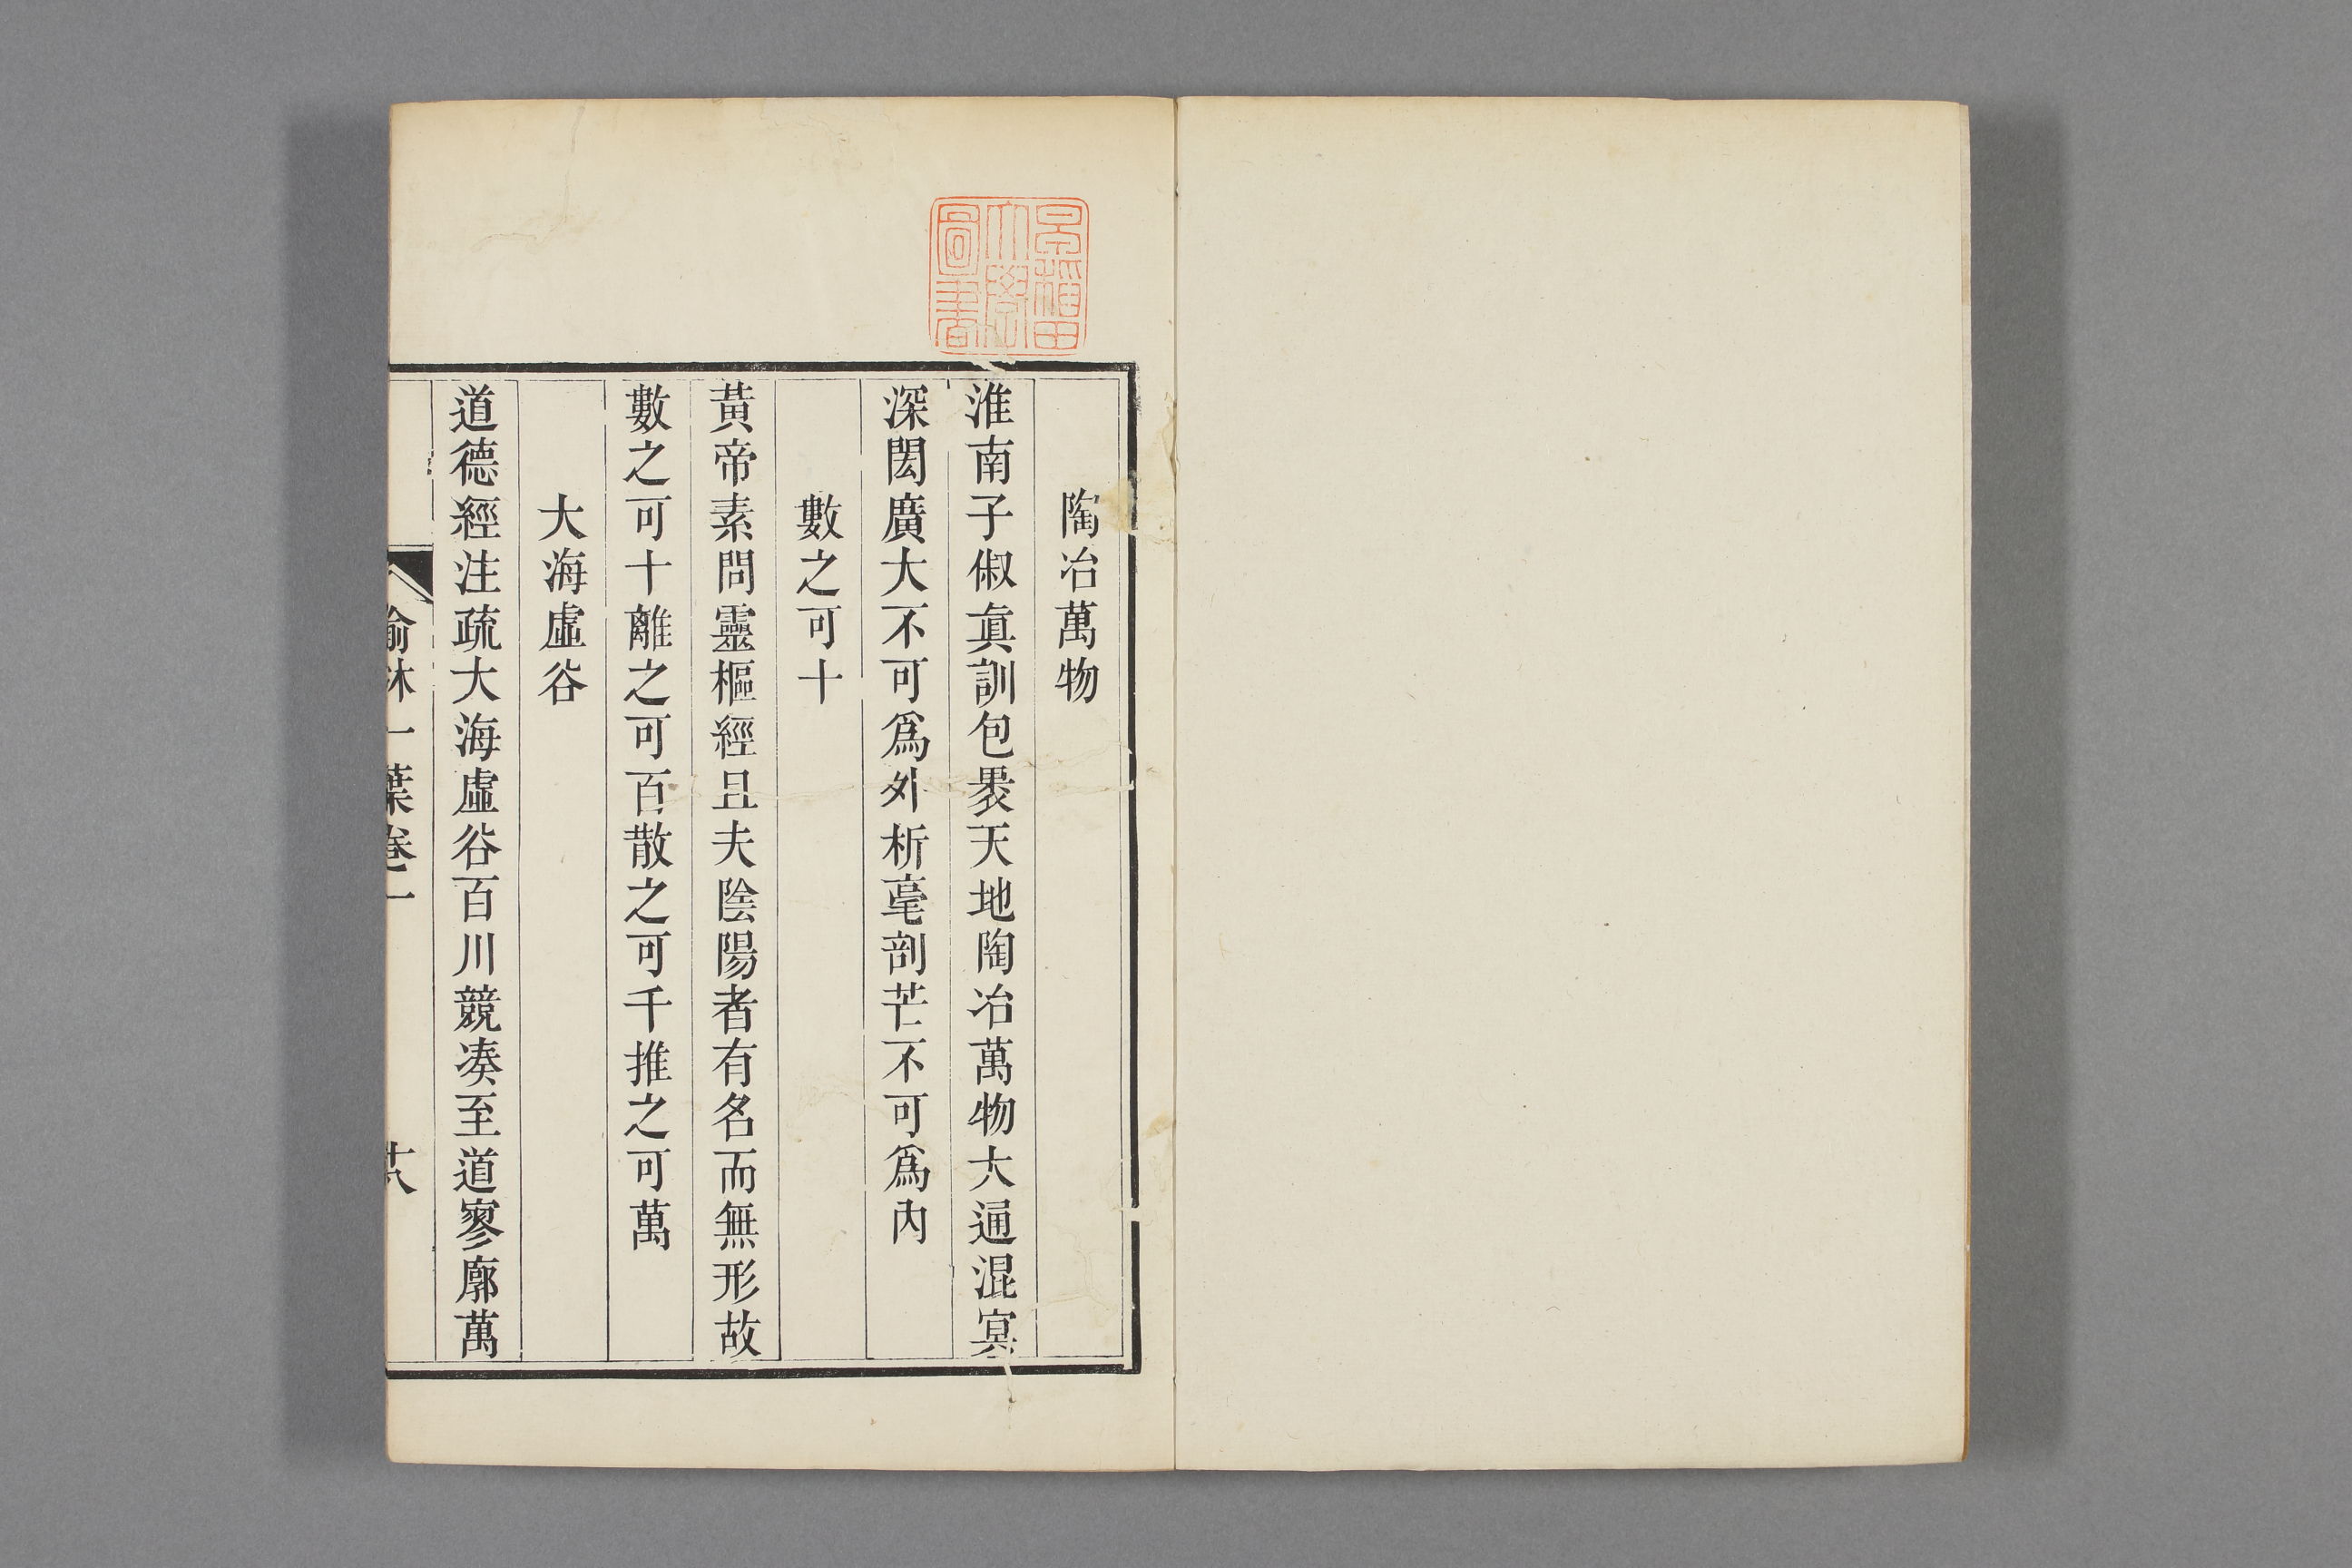 早稲田
大學
圖書
陶冶萬物
淮南子俶真訓包褁天地陶冶萬物大通混冥
深閎廣大不可爲外析毫剖芒不可爲內
數之可十
黃帝素問靈樞經且夫陰陽者有名而無形故
數之可十離之可百散之可千推之可萬
大海虛谷
道德經注疏大海虛谷百川競凑至道寥廓萬
喻林一葉卷一
十八